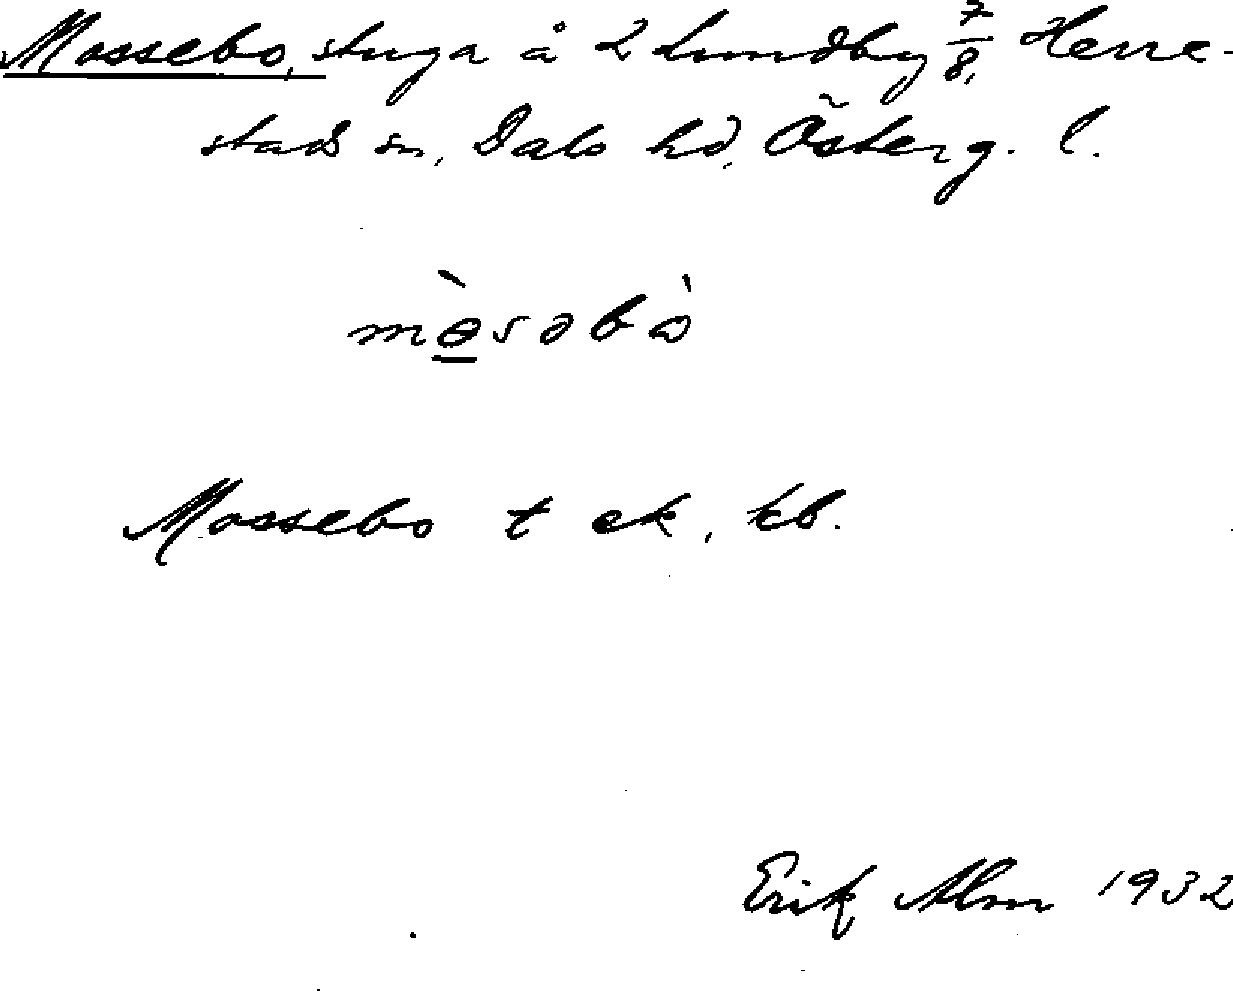 Mossebo, stuga å 2 Lundby 7/8, Herre-
stad sn, Dals hd, Österg. l.
mɵ̀səbò
Mossebo t ek, kb.
Erik Alm 1932